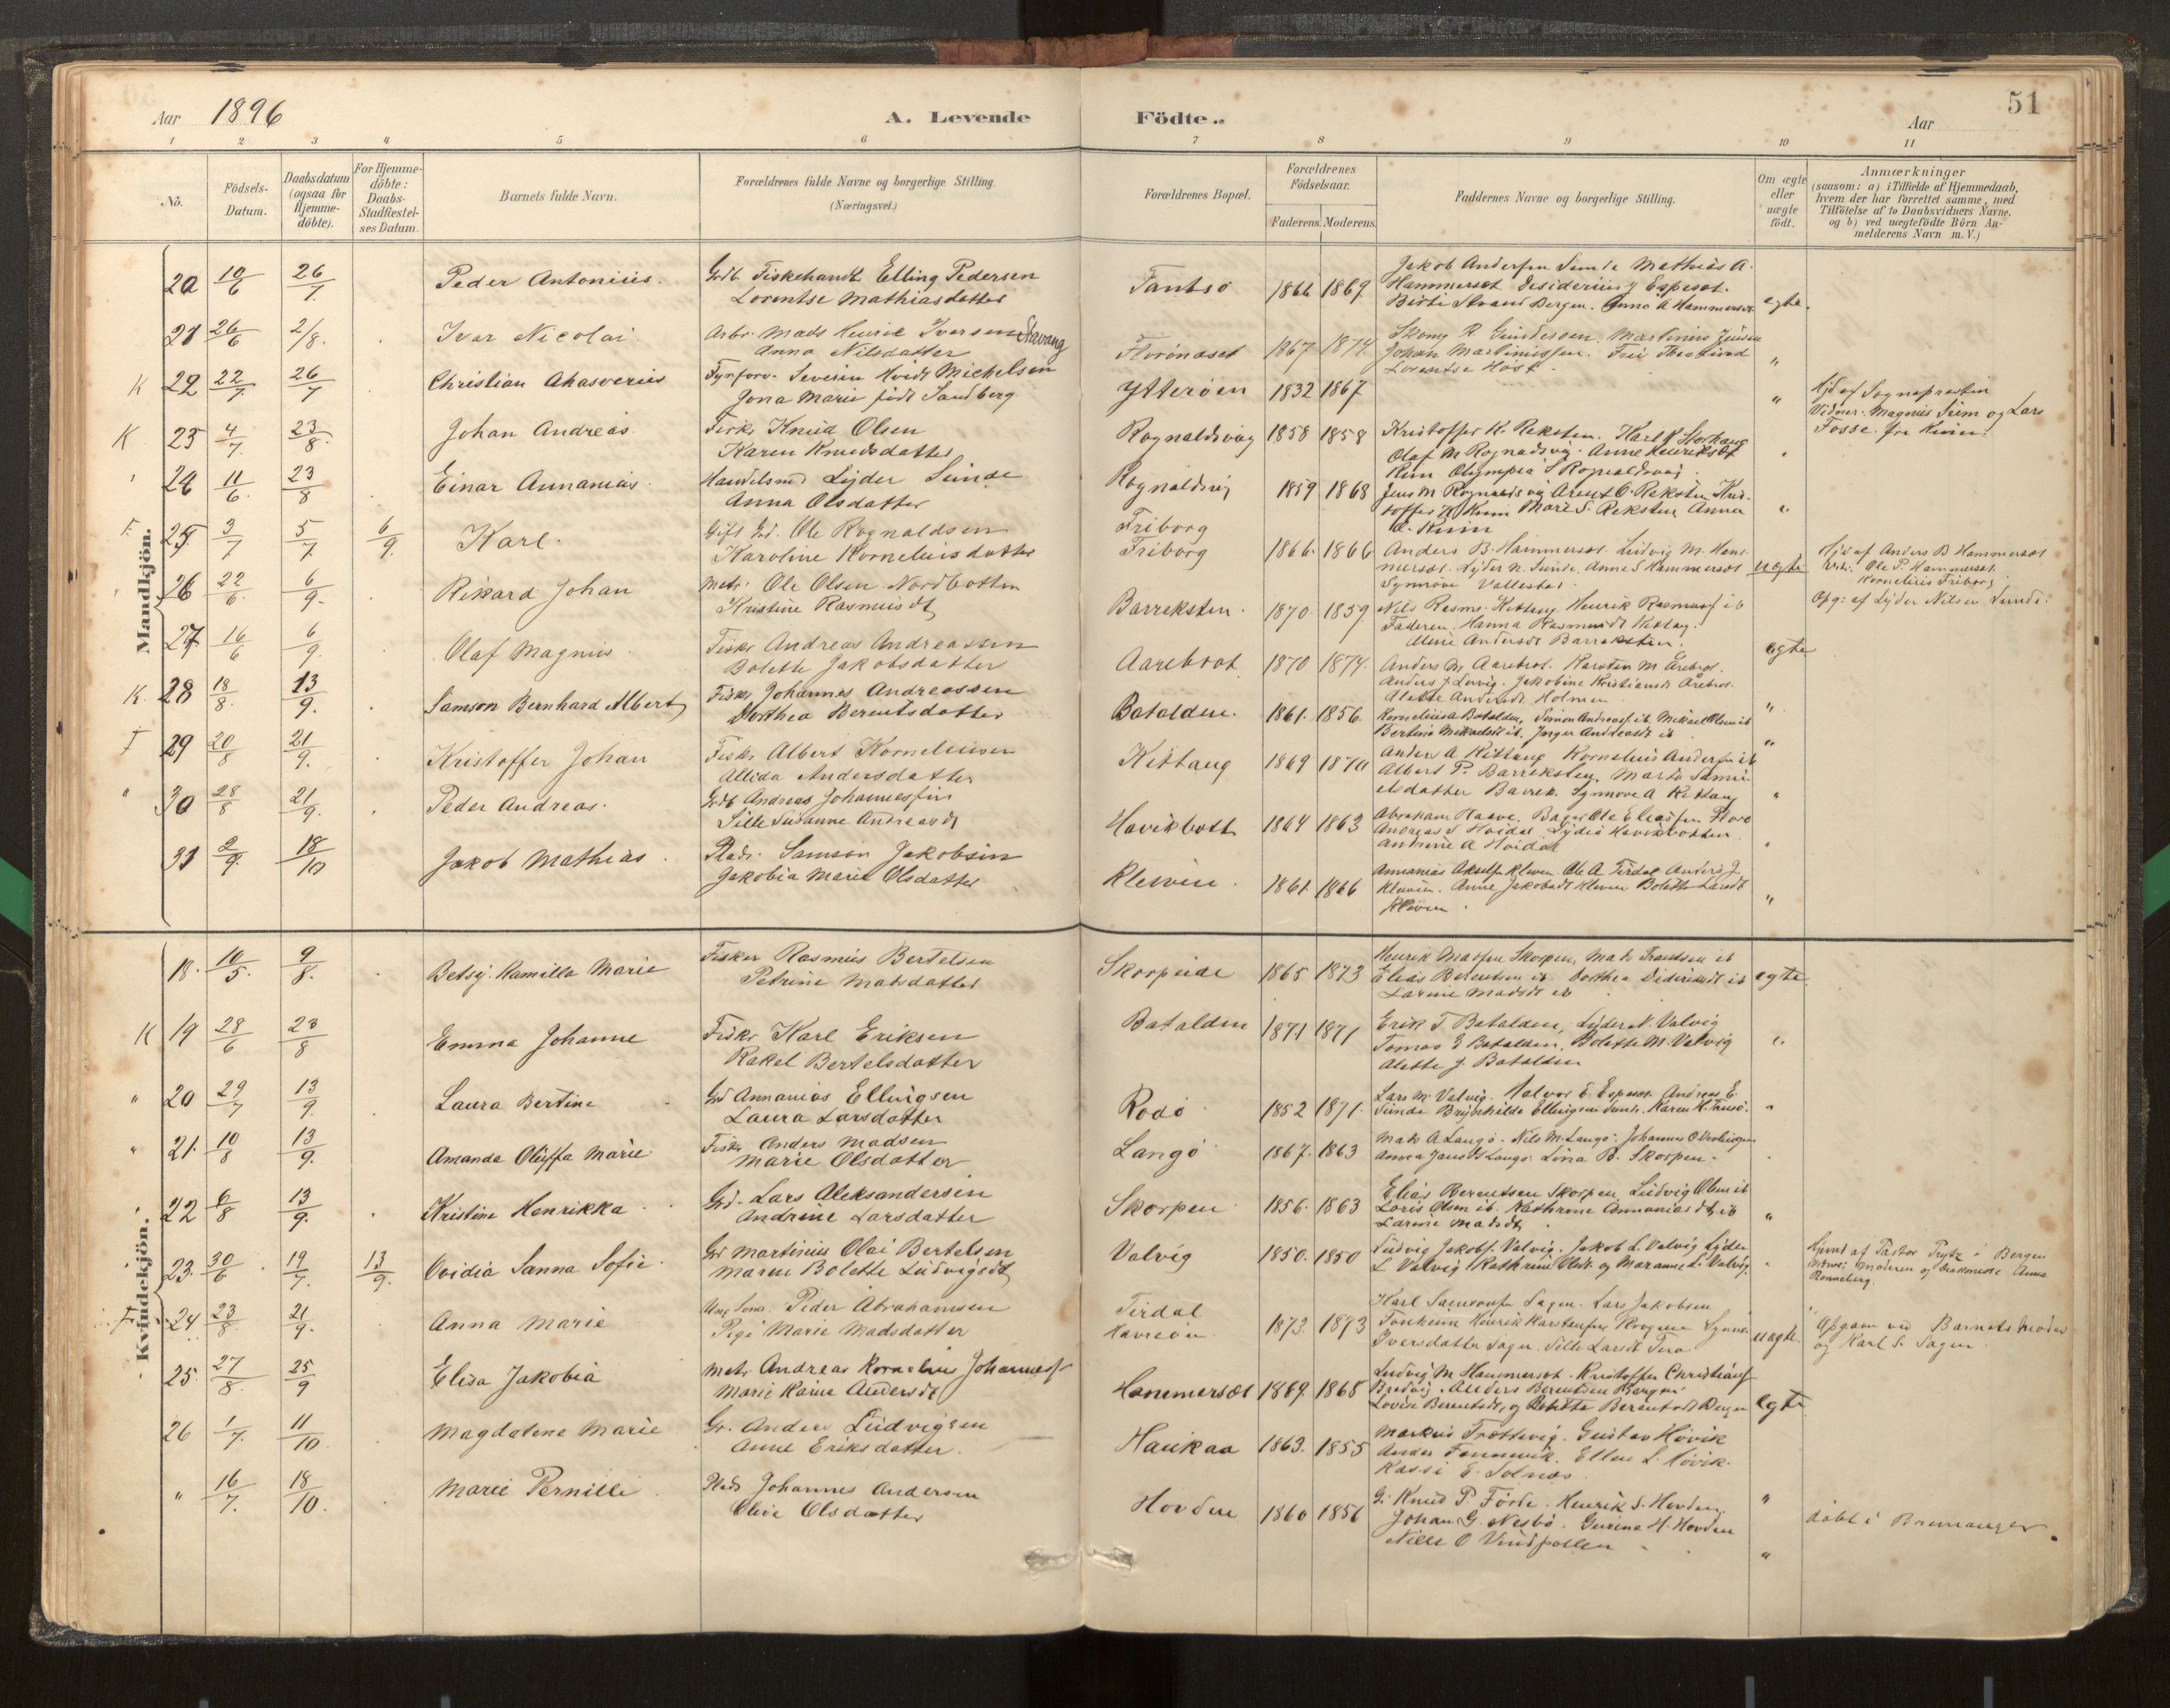 51
Aar 1896
A. Levende Födte.
Aar
1 2 3 4 5 6 7 8 9 10 11
Nö.
Födsels-Datum.
Daabsdatum (ogsaa för Hjemme-döbte).
For Hjemme-döbte: Daabs-Stadfæstel-ses Datum.
Barnets fulde Navn.
Forældrenes fulde Navne og borgerlige Stilling.
(Næringsvei.)
Forældrenes Bopæl.
Forældrenes Födselsaar.
Faderens. Moderens.
Faddernes Navne og borgerlige Stilling.
Om ægte eller uægte födt.
Anmærkninger
(saasom: a) i Tilfælde af Hjemmedaab,
hvem der har forrettet samme, med
Tilföielse af to Daabsvidners Navne,
og b) ved uægtefödte Börn An-
melderens Navn m. V.)
Mandkjön.
20 10/6 26/7 Peder Antonius. Fiskehandl. Elling Pedersen
Lorentse Mathiasdatter
1866 1869
Jakob Andersen Sunde Mathias A.
Hammerset
ægte.
21 26/6 2/8. Ivar Nicolai. Arbr. Mads Henrik Iversen Stavang
Anna Nilsdatter
Florönæset 1867 1874
Johan Martinussen.
Lorentse Höst.
"
K 22 22/7. 26/7 Christian Ahasverus Fyrforv. Severin Hvidt Michelsen
Jona Marie födt Sandberg
Ytteröen 1832 1867
"
Hjd af Sognepresten
Vidner. Magnus Siem og Lars
Fosse.
K 23 4/7 23/8. Johan Andreas. Fisker Knud Olsen
Karen Knudsdatter
Rognaldsvåg 1858 1858
Kristoffer K. Reksten. Karl K Storhaug
Olaf M. Rognadsvig. Anne Henriksdt
Kinn Olympia S Rognaldsvåg.
24 11/6. 23/8 Einar Annanias. Handelsmd Lyder Sunde
Anna Olsdatter
Rognaldsvig 1859 1868
Jens M Rognaldsvig Arent O. Reksten Kris-
toffer K Kinn Mari S. Reksten, Anna
O. Kinn
F. 25 3/7 5/7 6/9. Karl. Gift Gd. Ole Rognaldsen
Karoline Korneliusdatter
Friborg
Friborg 1866. 1866
Anders B. Hammerset Ludvig M. Ham-
mersæt. Lyder N. Sunde, Anne S Hammerset
Synnöve Vallestad.
uægte
Hjd af Anders B Hammerset
Vidn: Ole P. Hammerset
Kornelius Friborg
Opg: af Lyder Nilsen Sunde.
26 22/6. 6/9. Rikard Johan Matr. Ole Olsen Nordbotten
Kristine Rasmusdt
Barreksten. 1870. 1859
Nils Rasms. Kittang. Henrik Rasmussf ib
Faderen. Hanna Rasmusdt Kittang.
Marie Andersdt Barreksten.
ægte
27 16/6 6/9. Olaf Magnus. Fisker Andreas Andreassen
Bolette Jakobsdatter
Aarebrot. 1870 1874.
Anders M Aarebrot. Karsten M Årebrot.
Anders J Lervig. Jakobine Kristiansdt Årebrot.
Alette Andersdt Holmen
"
K. 28 18/8. 13/9. Samson Bernhard Albert Fisker Johannes Andreassen
Dorthea Berentsdatter
Batalden. 1861. 1856.
Kornelius A Batalden, Simon Andreasf. ib, Mikael Olsen ib
Bertine Mikaelsdt ib. Inger Andreasdt ib
"
F 29 20/8 21/9. Kristoffer Johan Fisker Albert Kornelius­en
Allida Andersdatter
Kittang 1869 1870
Anders A Kittang Kornelius Andersen ib
Albert P. Barreksten, Marte Samu-
elsdatter Barrek. Synnöve A Kittang
"
" 30 28/8 21/9. Peder Andreas. Gdb Andreas Johannesen
Sille Susanne Andreasdt
Havikbott 1864 1863
Abraham Haave. Bager Ole Eliassen Florö
Andreas S Hoidal
Andrine A Hoidal
"
31 2/9. 18/10 Jakob Mathias. Pladr. Samson Jakobsen
Jakobia Marie Olsdatter
Kleiven. 1861. 1866
Annanias Akself Kleven Ole A Tirdal Anders J.
Kleven. Anne Jakobsdt Kleven Bolette Larsdt
Kleven.
"
Kvindekjön.
18. 10/5. 9/8. Betsy Kamilla Marie Fisker Rasmus Bertelsen
Petrine Matsdatter
1865 1873
Henrik Madsen Skorpen, Mats Frantsen ib
Elias Berentsen ib. Dorthea Dideriksdt ib
Larine Madsdt ib
ægte
K 19 28/6 23/8 Emma Johanne Fisker Karl Eriksen
Rakel Bertelsdatter
Batalden 1871 1871
Erik T. Batalden, Lyder N. Valvig
Tomas E Batalden, Bolette M. Valvig
Alette J. Batalden
" 20 29/7 13/9. Laura Bertine Gd Annanias Ellingsen
Laura Larsdatter
Rodö 1852 1871.
Lars M. Valvig. Halvor E. Espeset. Andreas E.
Sunde Brynhilda Ellingsen Sunde. Karen K.
"
" 21. 10/8 13/9. Amanda Oluffa Marie. Fisker Anders Madsen
Marie Olsdatter
Langö 1867. 1863
Mads A Langö. Nils M. Langö. Johannes O
Anna Jansdt Langö. Lina B. Skorpen.
22 6/8 13/9. Kristine Henrikka. Gd. Lars Aleksandersen
Andrine Larsdatter
Skorpen 1856. 1863
Elias Berentsen Skorpen, Ludvig Olsen ib
Loris Olsen ib. Kathrine Annaniasdt ib
Larine Madsdt
"
23. 30/6 19/7. 13/9. Ovidia Sanna Sofie. Gd Martinus Olai Bertelsen
Maren Bolette Ludvigsdt
Valvig 1850. 1850
Ludvig Jakobs. Valvig. Jakob L. Valvig Lyder
L Valvig Kathrine og Marianne L. Valvig.
Hjemd af Pastor Prytz i Bergen
Vidner: Moderen og Diakonesse Anna
Rönneberg.
F 24 23/8. 21/9. Anna Marie Peder Abrahamsen
Pige Marie Madsdatter
Tirdal
Havreöen 1873. 1893
Karl Samsonsen Sagen. Lars Jakobsen
Tonheim Henrik Karstensen Synne
Iversdatter Sagen. Sille Larsdt
uægte.
Opgaven ved Barnets Moder
og Karl S. Sagen
25. 27/8. 25/9 Elisa Jakobia Matr. Andreas Kornelius Johannesf
Marie Karine Andersdt
Hammerset 1869. 1868
Ludvig M Hammerset. Kristoffer Christians
Bredvig. Anders Berentsen Bergen
Lovise Berentsdt, og Berentsdt Bergen
ægte
26 1/7. 11/10. Magdalene Marie Gr. Anders Ludvigsen
Anne Eriksdatter.
Haukaa 1863. 1855
Markus Trættevig. Gustav Hövik
Anders Fanevik. Ellen L. Hövik.
Kassi E. Solnæs.
"
" 16/7. 18/10. Marie Pernille Pladr Johannes Andersen
Olive Olsdatter
Hovden 1860 1856
G. Knud P. Förde. Henrik S. Hovden
Johan G. Nesbö. Gurine H. Hovden
Nille O Vindpollen
"
döbt i Bremanger